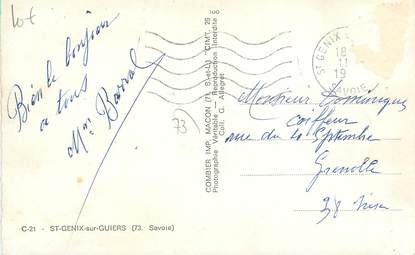 10f
Bien le bonjour
a tous
Mme Barral
73
C-21 - ST-GENIX-sur-GUIERS (73. Savoie)
COMBIER IMP. MACON (71. S.-et-L.) "CIMT. 26
Photographie Véritable — Reproduction Interdite
Coll. G. Allegret
ST GENIX
18
11
19
SAVOIE
Monsieur Dominique
coiffeur
rue du 4 Septembre
Grenoble
38 Isère